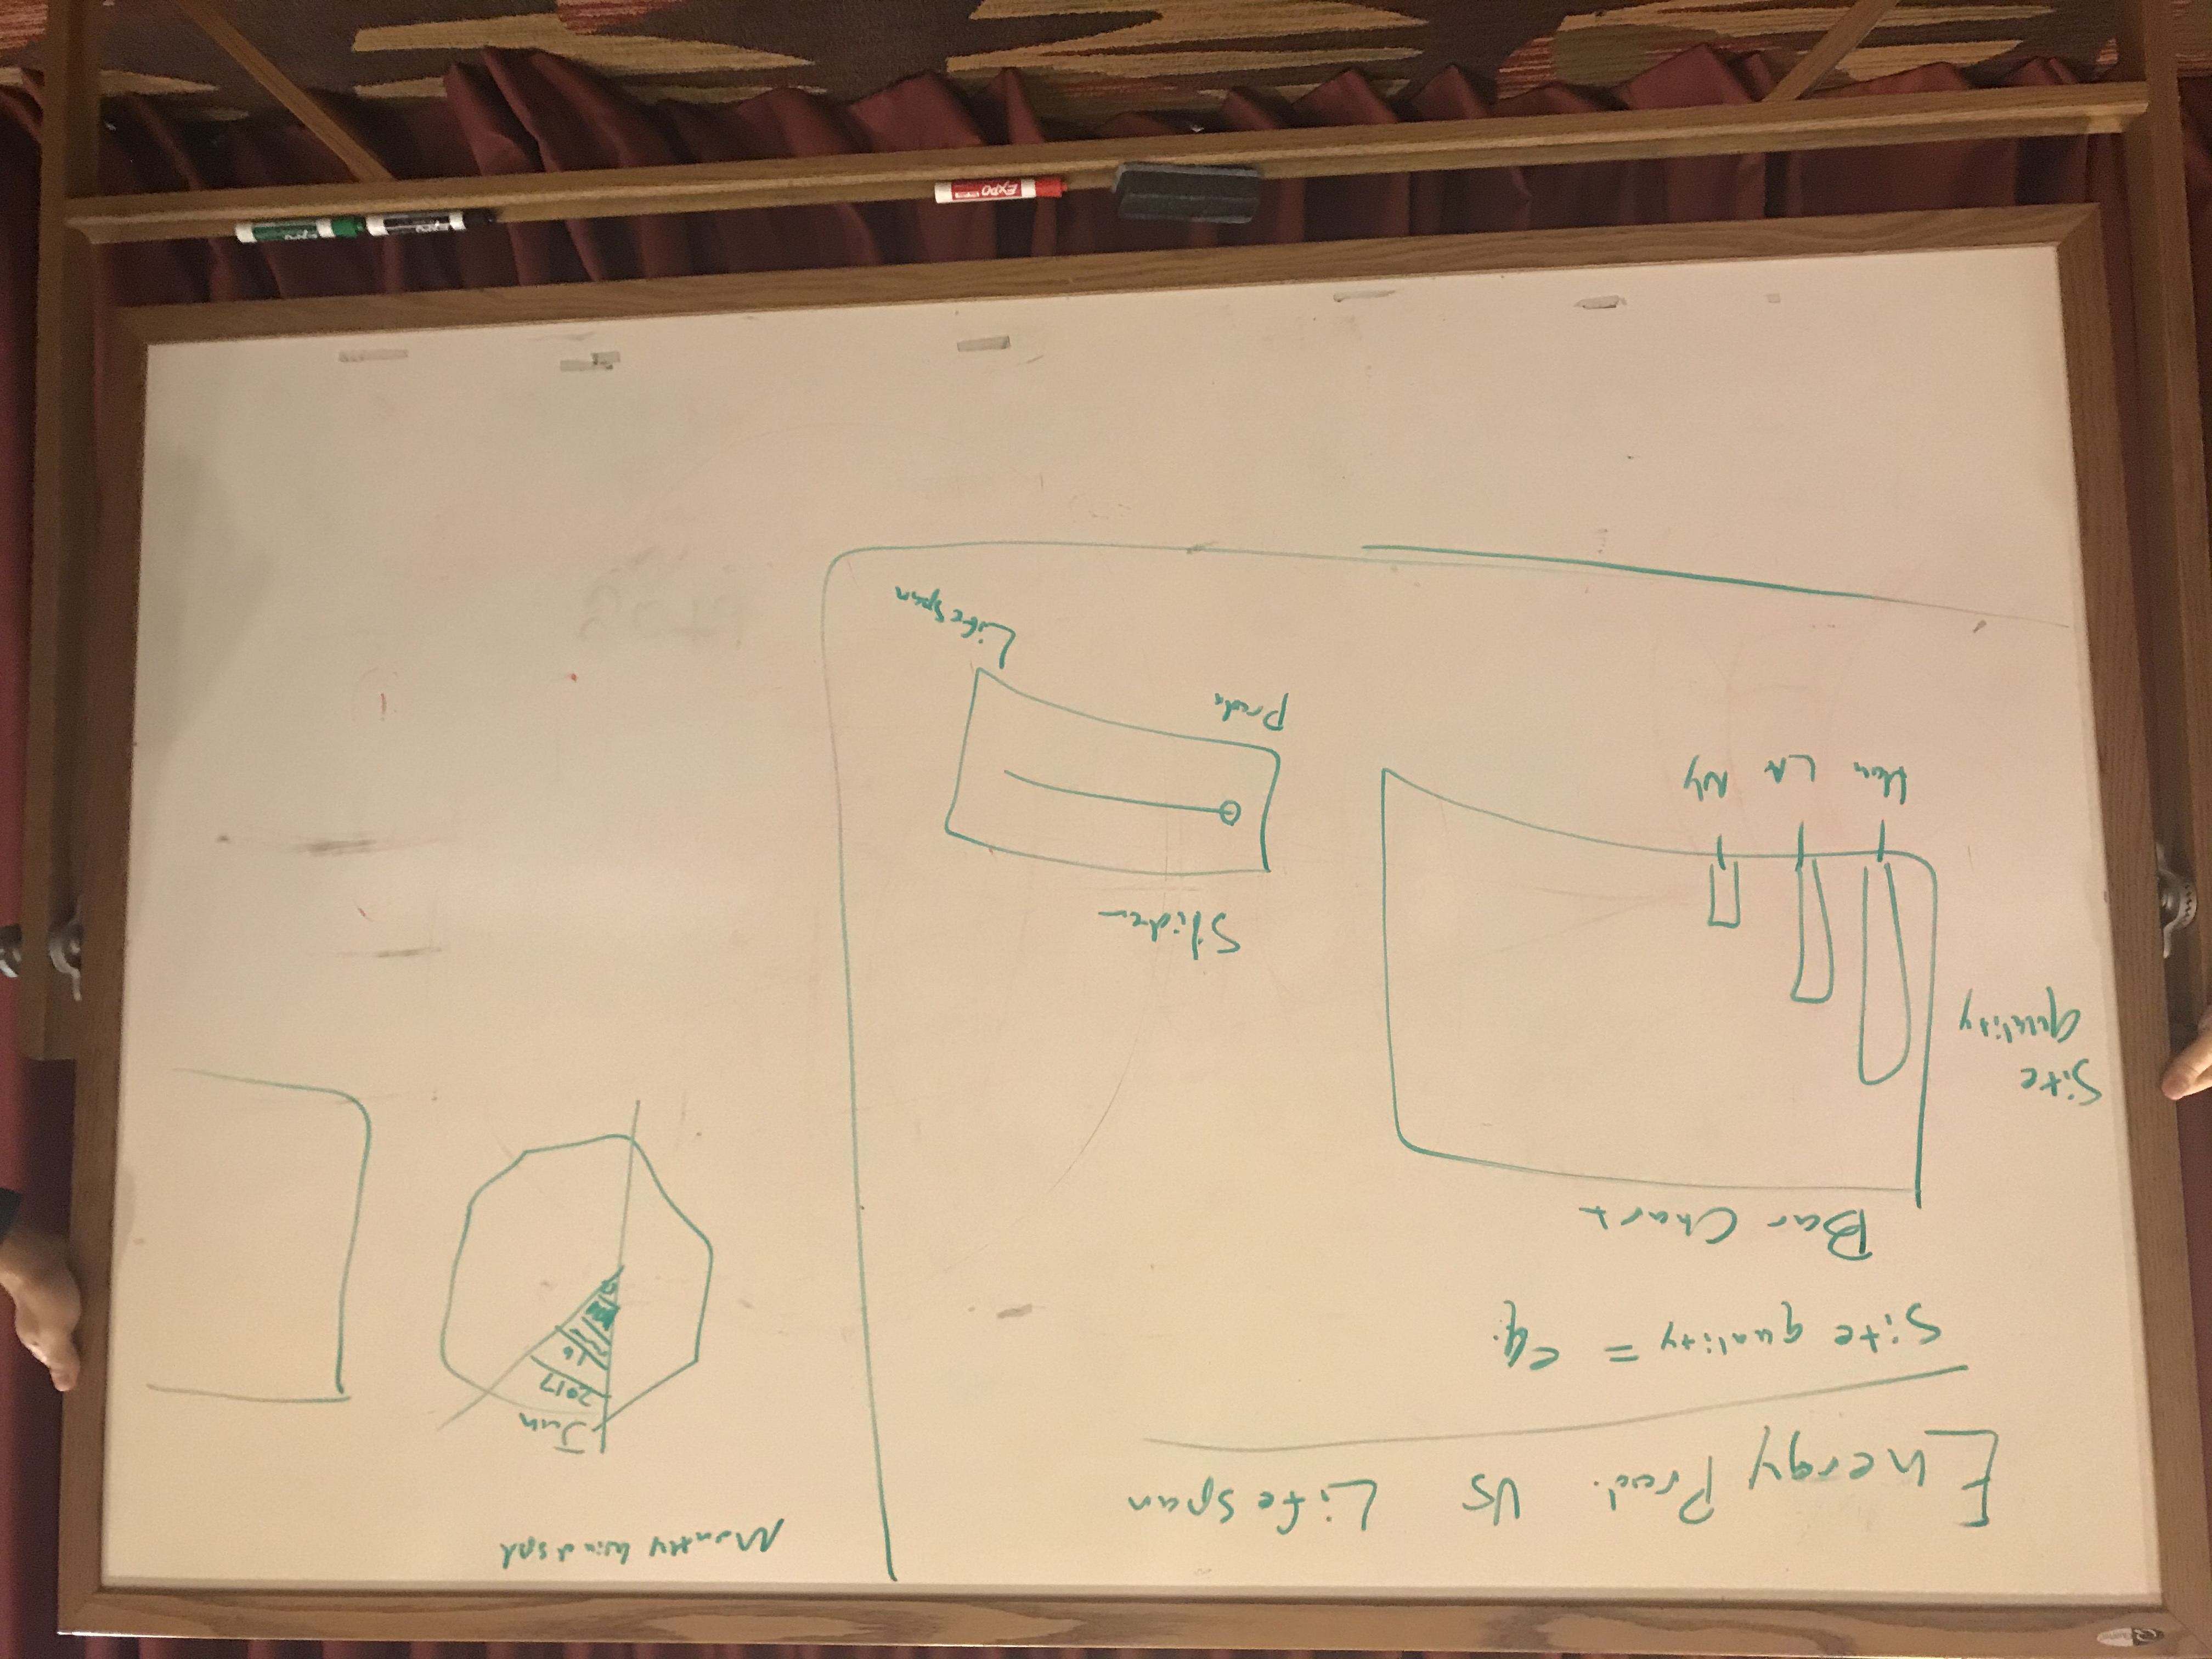 Energy Prod. Vs Lifespan
Site quality = eq.
Bar Chart
Site
quality
Hou LA NY
Slider
Prod.
Lifespan
Monthly Windspd
Jun
2017
16
EXPO
EXPO
EXPO